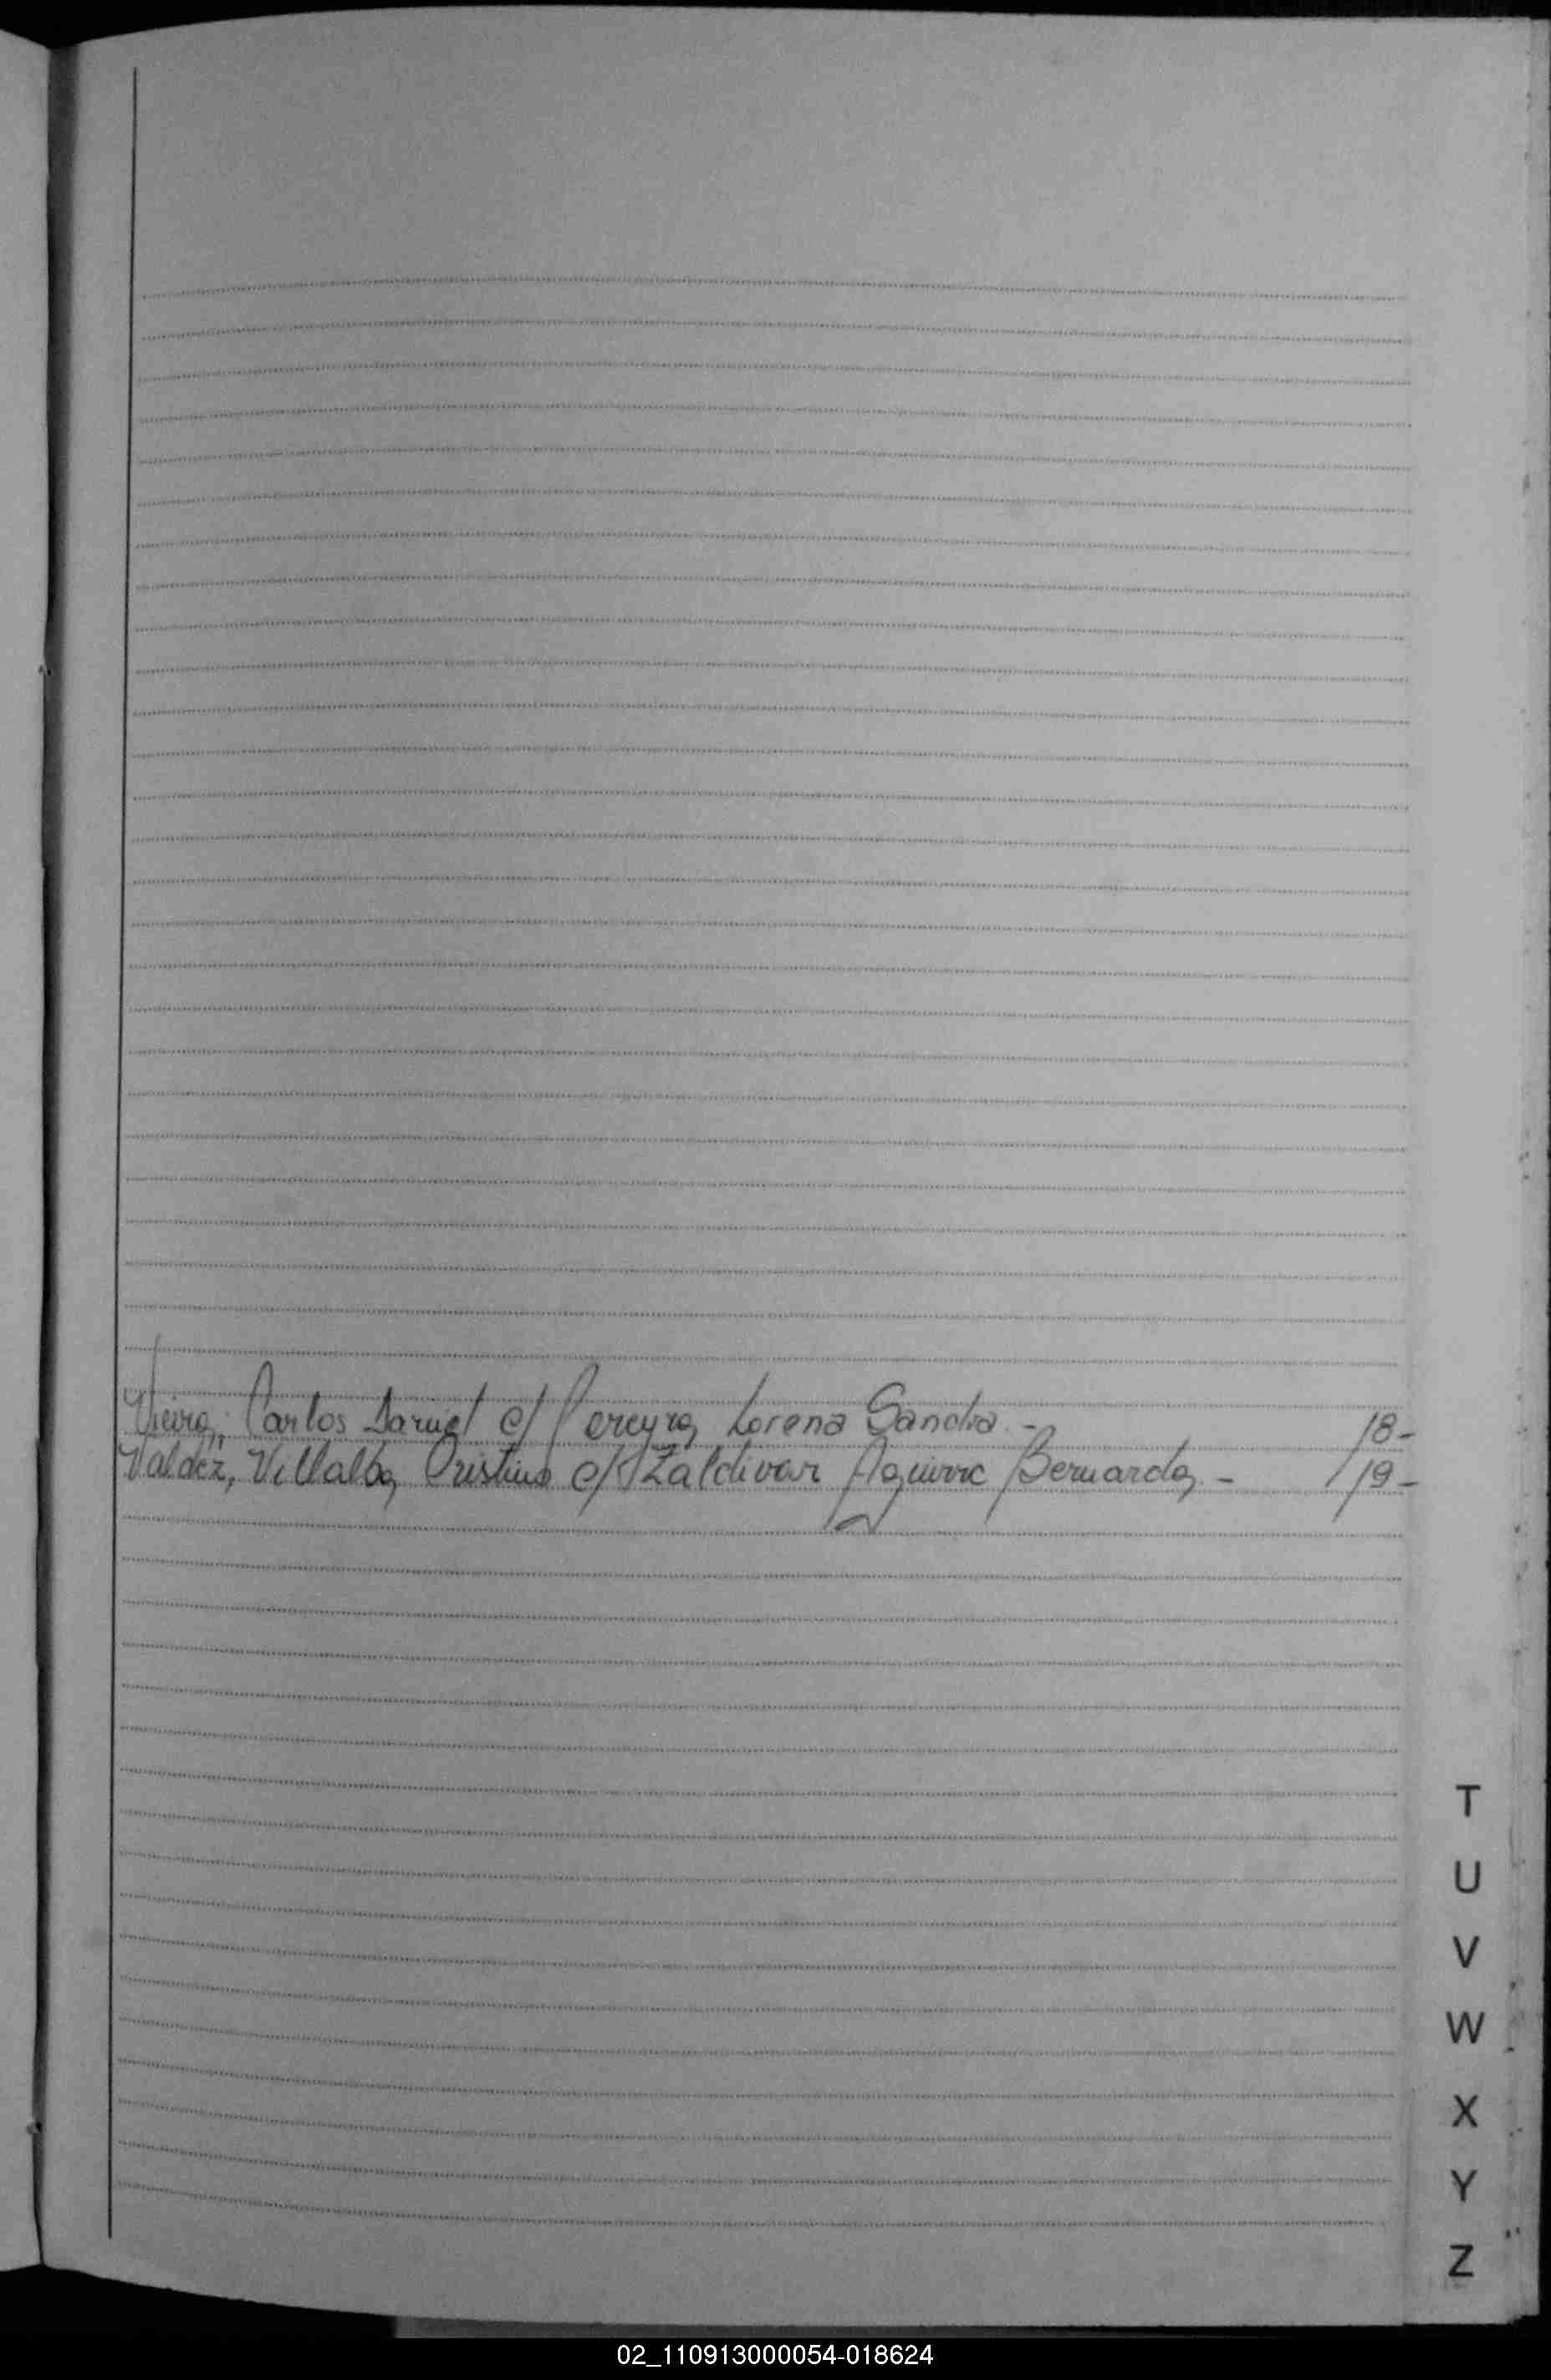 Vieira, Carlos Daniel c/ Pereyra, Lorena Sandra.- 18-
Valdéz, Villalba, Cristino c/ Zaldivar Aguirre Bernarda.- 19-
T
U
V
W
X
Y
Z
02_110913000054-018624